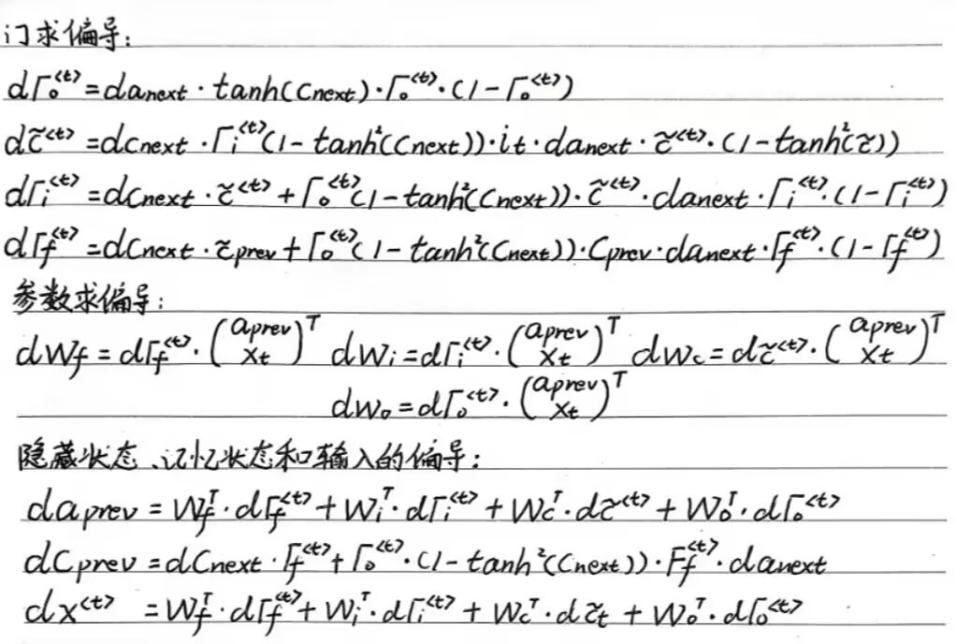 门求偏导:
dΓₒ^<t> = da_next · tanh(c_next) · Γₒ^<t> · (1 - Γₒ^<t>)
dc̃^<t> = dc_next · Γᵢ^<t> (1 - tanh²(c_next)) · it · da_next · c̃^<t> · (1 - tanh²(c̃))
dΓᵢ^<t> = dc_next · c̃^<t> + Γₒ^<t> (1 - tanh²(c_next)) · c̃^<t> · da_next · Γᵢ^<t> · (1 - Γᵢ^<t>)
dΓ_f^<t> = dc_next · c̃_prev + Γₒ^<t> (1 - tanh²(c_next)) · c_prev · da_next · Γ_f^<t> · (1 - Γ_f^<t>)
参数求偏导:
dW_f = dΓ_f^<t> · (a_prev x_t)^T dW_i = dΓᵢ^<t> · (a_prev x_t)^T dW_c = dc̃^<t> · (a_prev x_t)^T
dW_o = dΓₒ^<t> · (a_prev x_t)^T
隐藏状态、记忆状态和输入的偏导:
da_prev = W_f^T · dΓ_f^<t> + W_i^T · dΓᵢ^<t> + W_c^T · dc̃^<t> + W_o^T · dΓₒ^<t>
dc_prev = dc_next · Γ_f^<t> + Γₒ^<t> · (1 - tanh²(c_next)) · F_f^<t> · da_next
dx^<t> = W_f^T · dΓ_f^<t> + W_i^T · dΓᵢ^<t> + W_c^T · dc̃_t + W_o^T · dΓₒ^<t>